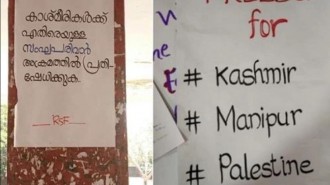 കാശ്മീരികൾക്ക്
എതിരെയുള്ള
സംഘപരിവാർ
അക്രമത്തിൽ പ്രതി-
ഷേധിക്കുക.
RSF
for
# Kashmir
# Manipur
# Palestine